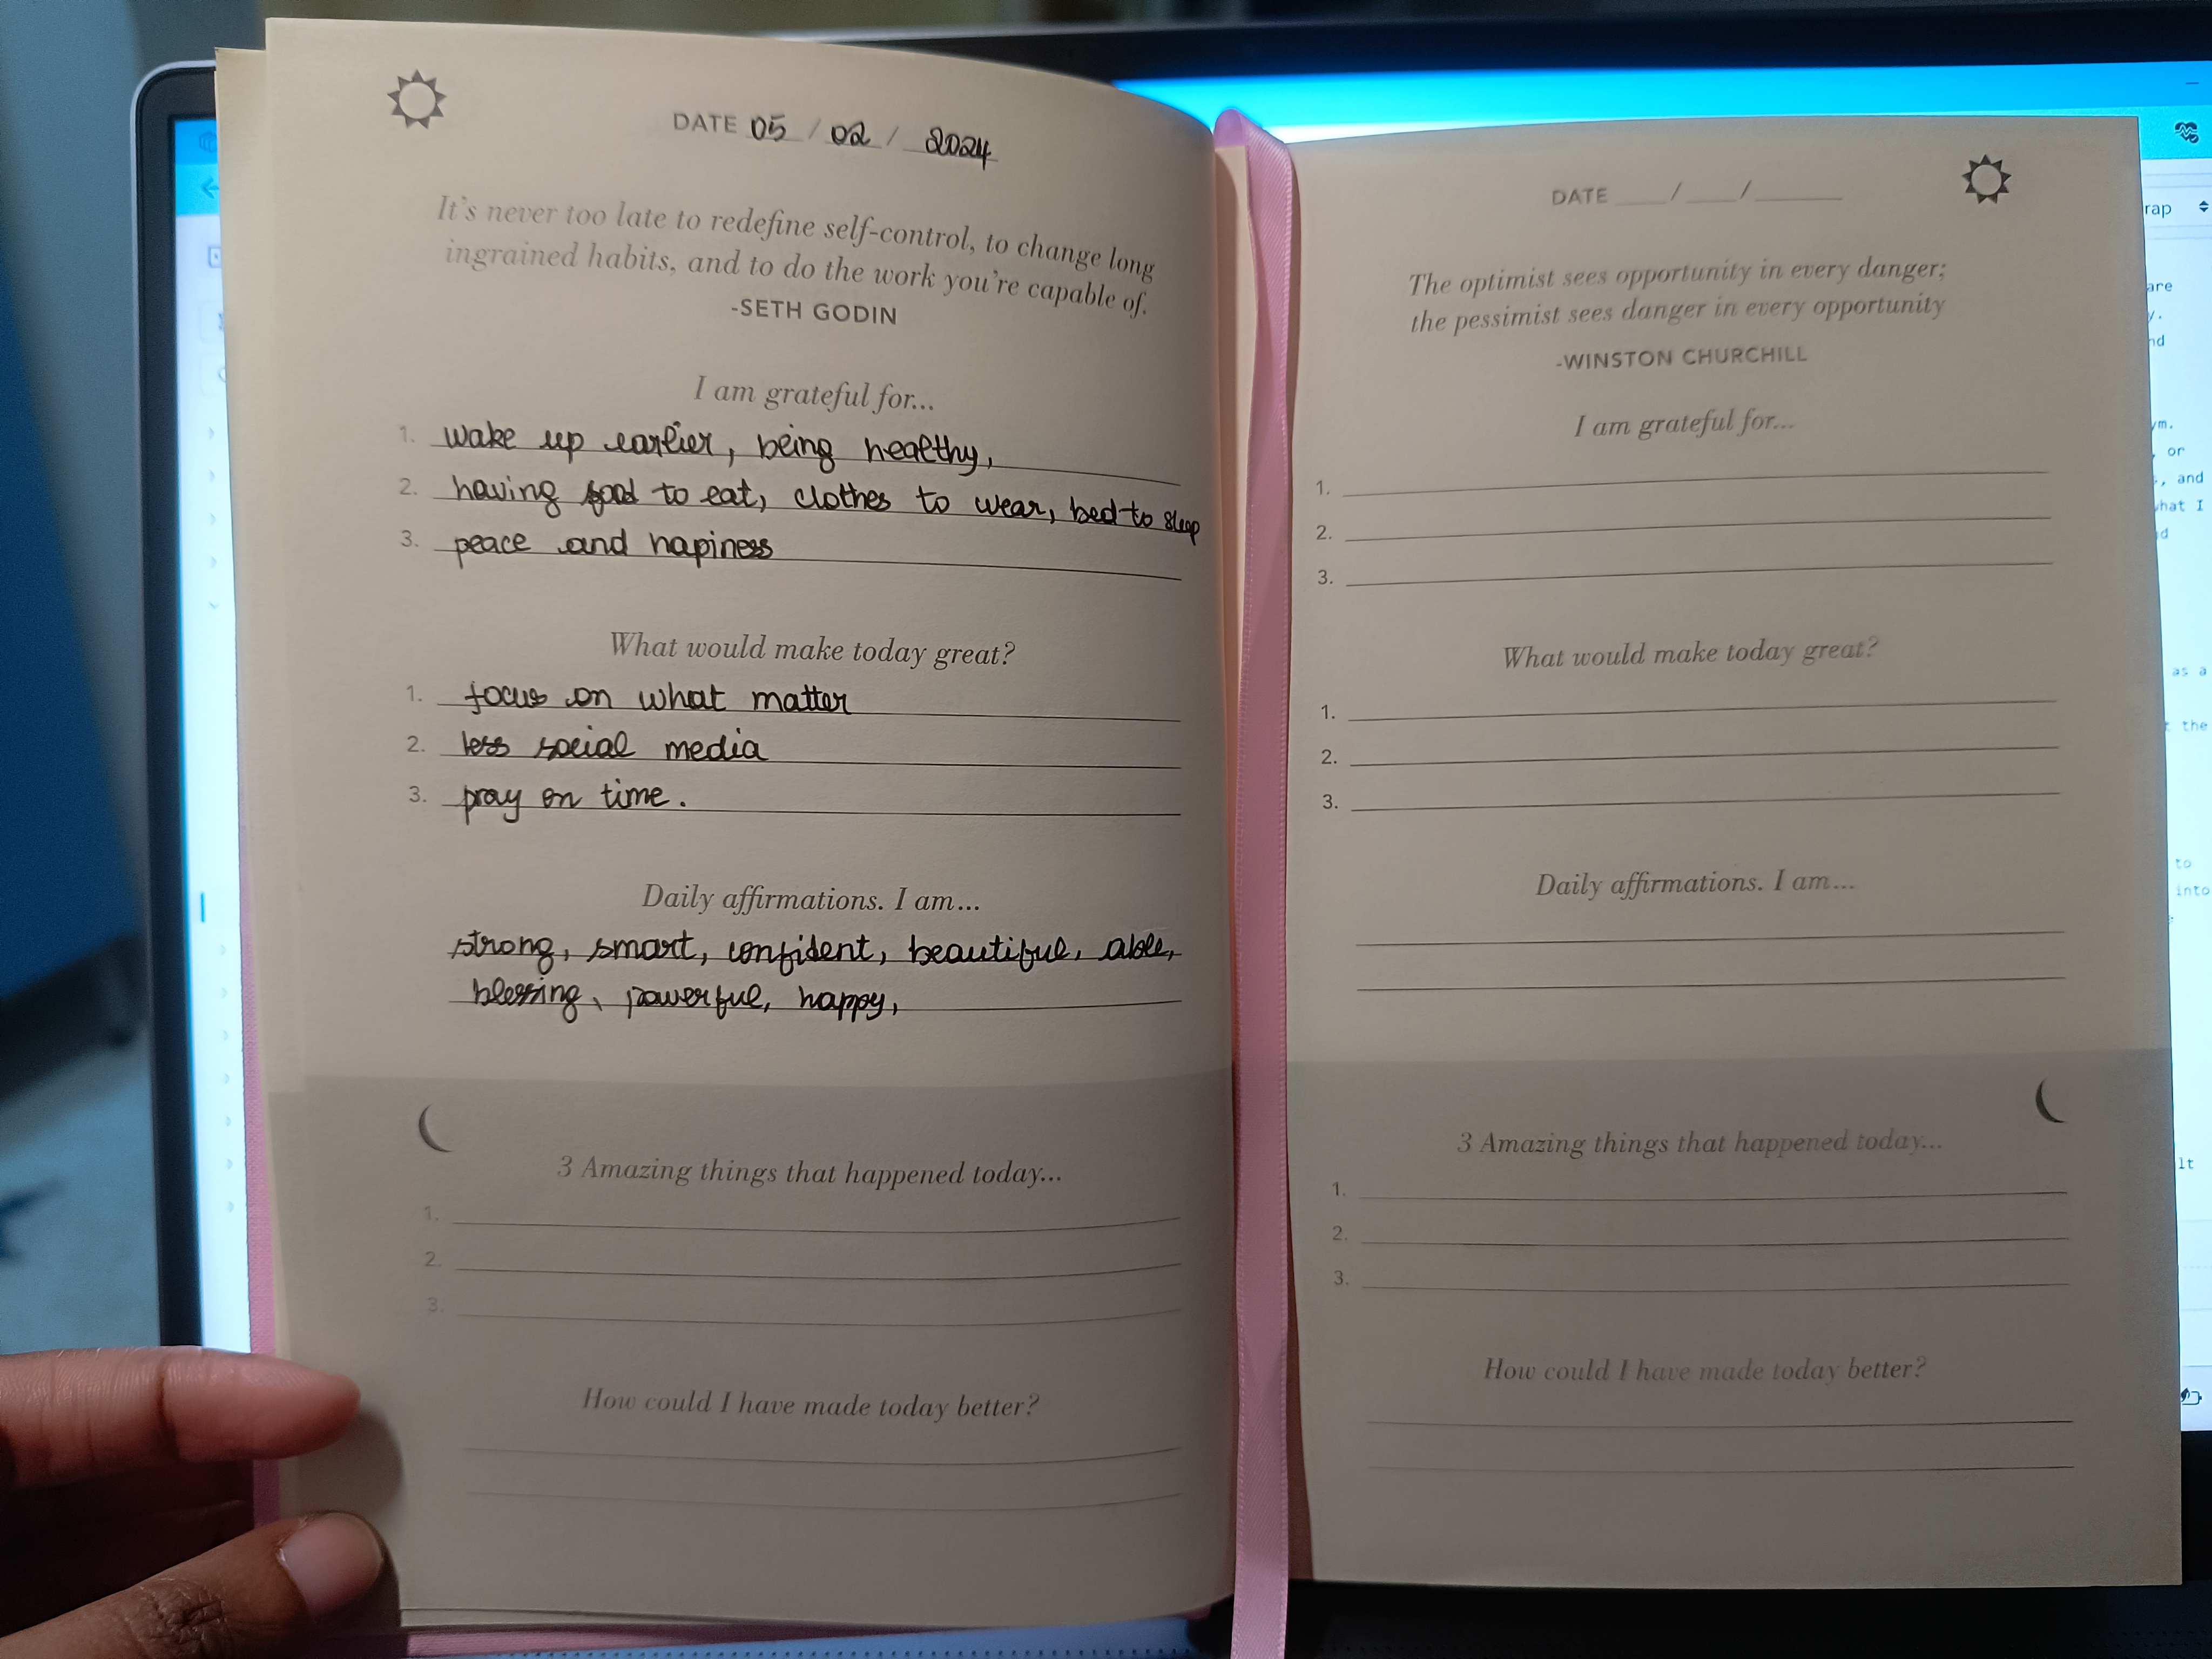 DATE 05 / 02 / 2024
It's never too late to redefine self-control, to change long
ingrained habits, and to do the work you're capable of.
-SETH GODIN
I am grateful for...
1. wake up earlier, being healthy,
2. having food to eat, clothes to wear, bed to sleep
3. peace and hapiness
What would make today great?
1. focus on what matter
2. less social media
3. pray on time.
Daily affirmations. I am...
strong, smart, confident, beautiful, able,
blessing, powerful, happy,
3 Amazing things that happened today...
1.
2.
3.
How could I have made today better?
DATE / /
The optimist sees opportunity in every danger;
the pessimist sees danger in every opportunity
-WINSTON CHURCHILL
I am grateful for...
1.
2.
3.
What would make today great?
1.
2.
3.
Daily affirmations. I am...
3 Amazing things that happened today...
1.
2.
3.
How could I have made today better?
rap
are
or
, and
what I
as a
the
to
into